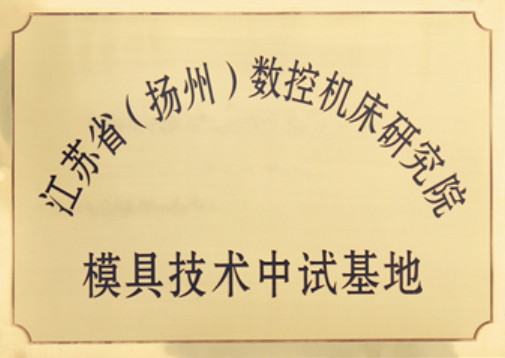 江苏省（扬州）数控机床研究院
模具技术中试基地